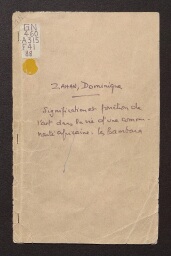 GN
450
A515
F41
88
ZAHAN, Dominique
Signification et fonction de
l'art dans la vie d'une commu-
nauté africaine: les Bambara